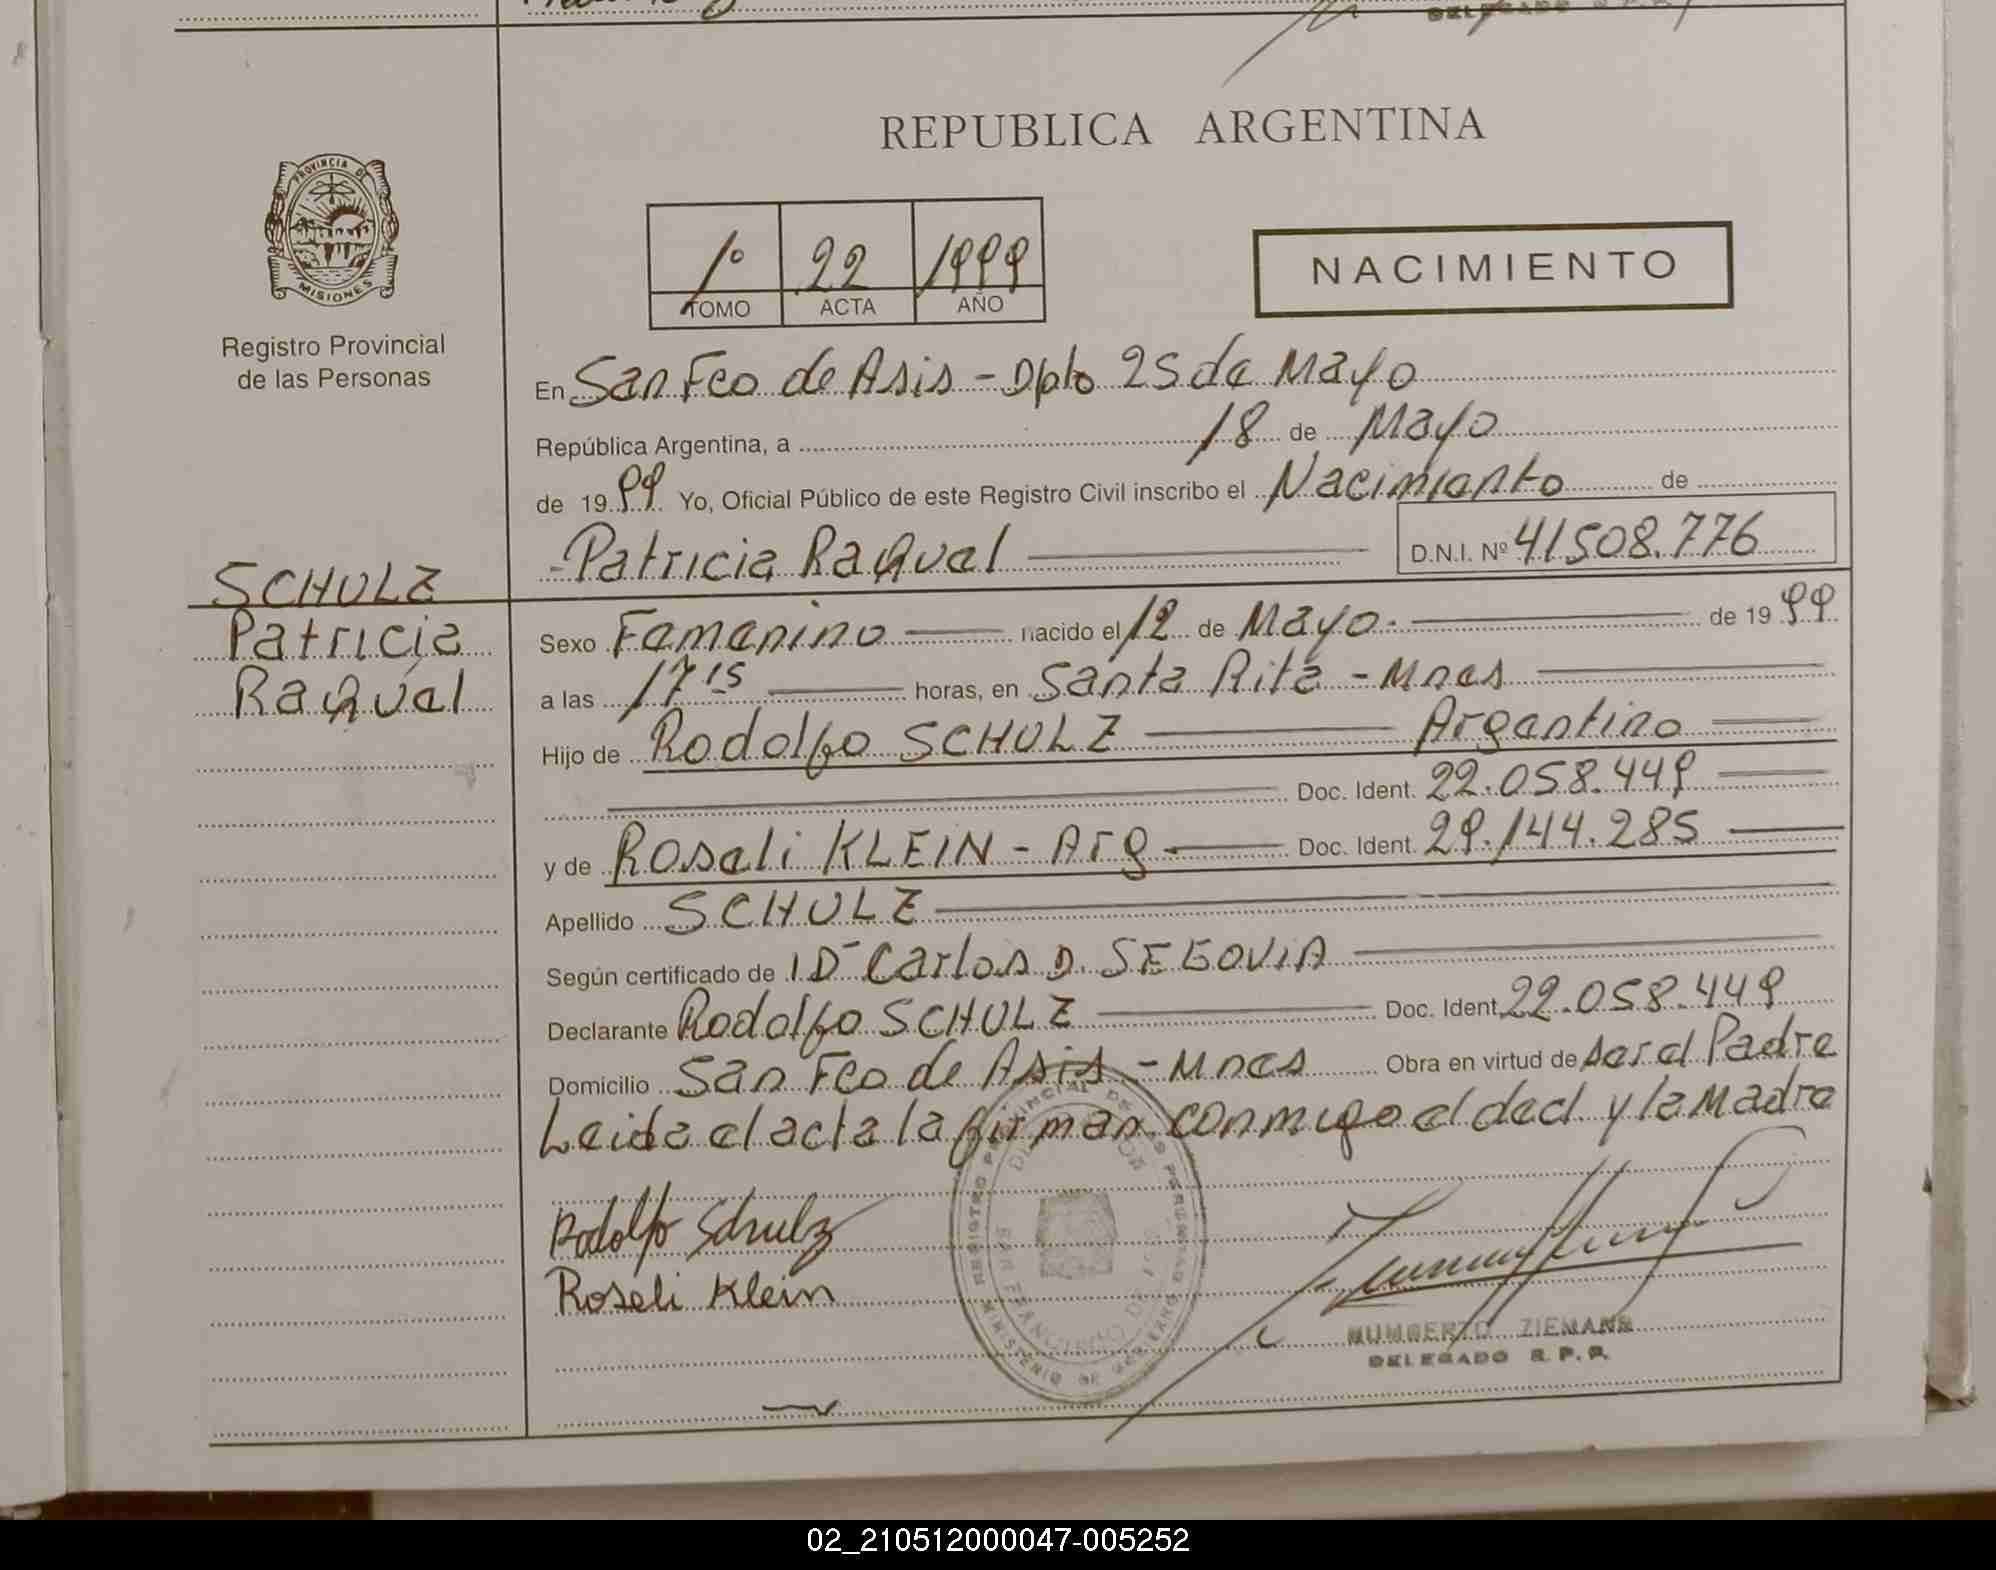 REPUBLICA ARGENTINA
PROVINCIA DE
MISIONES
Registro Provincial
de las Personas
1º 22 1999
TOMO ACTA AÑO
NACIMIENTO
En San Fco de Asis - Dpto 25 de Mayo
República Argentina, a 18 de Mayo
de 1999 Yo, Oficial Público de este Registro Civil inscribo el Nacimiento de
- Patricia Raquel D.N.I. Nº 41508.776
SCHULZ
Patricia
Raquel
Sexo Femenino nacido el 12 de Mayo. de 1999
a las 17 15 horas, en Santa Rita - Mnes
Hijo de Rodolfo SCHULZ Argentino
Doc. Ident. 22.058.449
y de Roseli KLEIN - Arg Doc. Ident. 29.144.285
Apellido SCHULZ
Según certificado de Dr Carlos D. SEGOVIA
Declarante Rodolfo SCHULZ Doc. Ident. 22.058.449
Domicilio San Fco de Asis - Mnes Obra en virtud de ser el Padre
Leida el acta la firman conmigo el decl y la Madre
Rodolfo Schulz
Roseli Klein
HUMBERTO ZIEMANN
DELEGADO R.P.P.
02_210512000047-005252